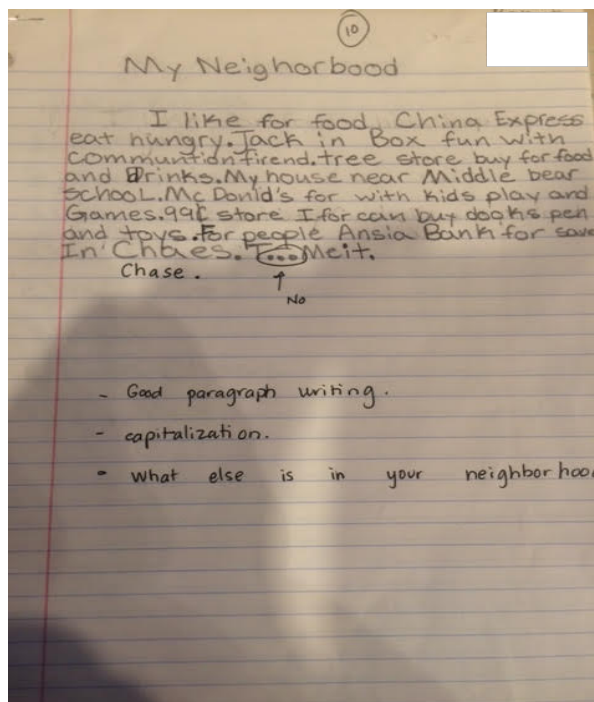 10
My Neighorbood
I like for food China Express
eat hungry. Jack in Box fun with
communtion firend. tree store buy for food
and Drinks. My house near Middle bear
SchooL. Mc Donld's for with kids play and
Games. 99¢ store I for can buy dooks pen
and toys. For people Ansia Bank for save
In Chaes. T... Meit.
Chase.
↑
No
- Good paragraph writing.
- capitalization.
- What else is in your neighborhoo